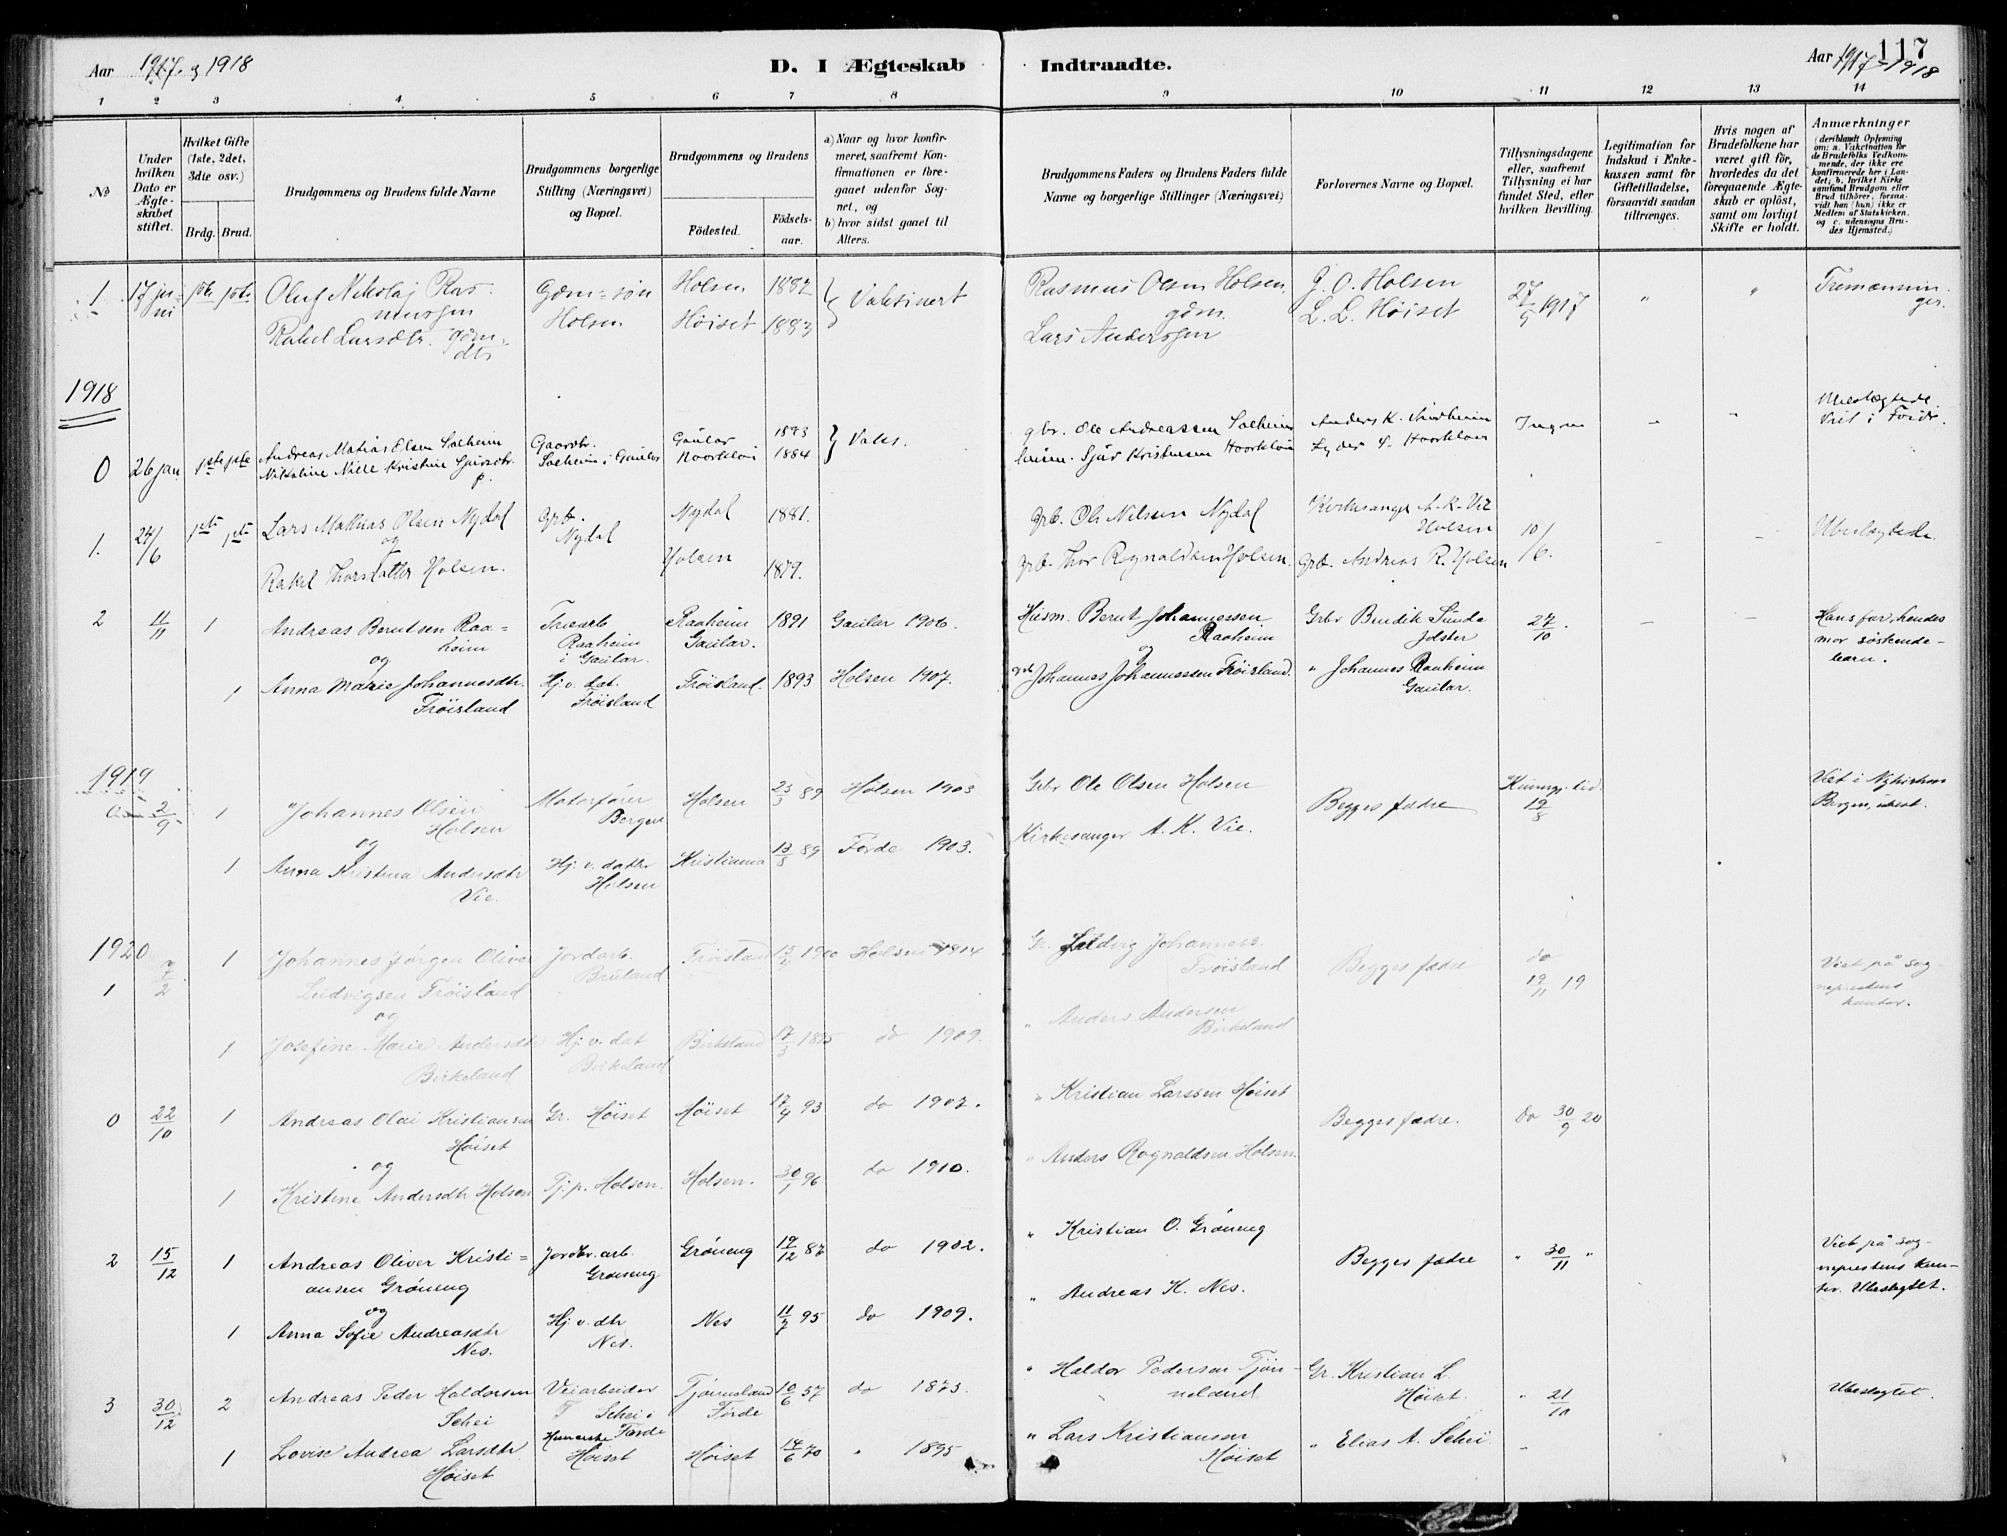 Aar 1917 og 1918
D. I Ægteskab Indtraadte.
Aar 1917-1918
117
1 2 3 4 5 6 7 8 9 10 11 12 13 14
No
Under hvilken Dato er Ægteskabet stiftet.
Hvilket Gifte (1ste, 2det, 3die osv.)
Brdg. Brud.
Brudgommens og Brudens fulde Navne
Brudgommens borgerlige Stilling (Næringsvei) og Bopæl.
Brudgommens og Brudens
Födested.
Födselsaar.
a) Naar og hvor konfirmeret, saafremt Konfirmationen er foregaaet udenfor Sognet, og
b) hvor sidst gaaet til Alters.
Brudgommens Faders og Brudens Faders fulde Navne og borgerlige Stillinger (Næringsvei)
Forlovernes Navne og Bopæl.
Tillysningsdagene eller, saafremt Tillysning ei har fundet Sted, efter hvilken Bevilling.
Legitimation for Indskud i Enkekassen samt for Giftetilladelse, forsaavidt saadan tiltrænges.
Hvis nogen af Brudefolkene har været gift för, hvorledes da det foregaaende Ægteskab er oplöst, samt om lovligt Skifte er holdt.
Anmærkninger
(deriblandt Oplysning om: a. Vakcination for de Brudefolks Vedkommende, der ikke ere konfirmerede her i Landet; b. hvilket Kirkesamfund Brudgom eller Brud tilhörer, forsaavidt han (hun) ikke er Medlem af Statskirken, og c. udensogns Brudes Hjemsted.)
1 17 juni 1ste 1ste Oluf Nikolaj Rasmussen Gdm-søn Holsen Holsen 1882 Vaksinert Rasmus Olsen Holsen, gdm. G. O. Holsen 27/5 1917 " " Tremænninger.
Rakel Larsdtr. gdm.dtr Høiset 1883 Lars Anderssen L. L. Høiset
1918
0 26 jan. 1ste 1ste Andreas Matias Olsen Solheim Gaardbr. Solheim i Gaular Gaular 1893 Vaks. gbr. Ole Andreassen Solheim Anders K. Ingen - " Ubeslægtede. Viet i Førde.
Nikoline Nille Kristine Sjursdtr. 1884 Sjur Kristensen
1. 24/6 1ste 1ste Lars Matias Olsen Nydal Grb. Nydal Nydal 1881. Grb. Ole Nilsen Nydal Kirkesanger A. K. Vie Holsen 10/6. - - Ubeslegtede.
og
Rakel Thorsdatter Holsen. Holsen 1879. Grb. Thor Rognaldsen Holsen. Grb. Andreas R. Holsen
2 11/11 1 Andreas Berntsen Raaheim Raaheim i Gaular. Raaheim Gaular. 1891 Gaular 1906. Husm. Bernt Johannessen Raaheim Grbr Bendik Sunde Jolster 27/10 - - Hans far, hendes mor söskendebarn.
og
1 Anna Marie Johannesdtr. Fröisland Hj. v. dat. Fröisland Fröisland. 1893 Holsen 1907. Johannes Johannessen Fröisland. " Johannes Raaheim Gaular.
1919
2/9 1 Johannes Olsen Holsen Motorfører Bergen Holsen 23/3 89 Holsen 1903 Grbr Ole Olsen Holsen Begges fædre 19/8 Viet i Nykirken Bergen,
og
1 Anna Kristina Andersdtr Vie. Hj. v. datter Holsen Kristiania 13/8 89 Førde 1903. Kirkesanger A. K. Vie.
1920
1 7/2 1 Johannes Jörgen Oliver Ludvigsen Fröisland Jordarb. Bruland Fröisland 1900 Holsen 1914 Gr. Ludvig Johanness. Fröisland Begges fædre do 19/11 19 Viet på sogneprestens kontor.
og
1 Josefine Marie Andersdtr Birkeland Hj. v. dat Birkeland Birkeland 17/3 1895 do 1909. " Anders Andersen Birkeland
0 22/10 1 Andreas Olai Kristiansen Höiset Gr. Höiset Höiset 17/4 93 do 1907. " Kristian Larssen Höiset Begges fædre. Do 30/9 20
og
1 Kristine Andersdtr Holsen Tj. p. Holsen. Holsen. 30/1 96 do 1910. " Anders Rognaldsen Holsen.
2 15/12 1 Andreas Oliver Kristiansen Gröneng Jordbr. arb. Gröneng Gröneng 19/12 87 do 1902. " Kristian O. Gröneng Begges fædre " 30/11 " Viet på sogneprestens kontor. Ubeslegtet.
og
1 Anna Sofie Andreasdtr Nes. Hj. v. dtr Nes. Nes 11/7 95 do 1909. " Andreas K. Nes.
3 30/12 2 Andreas Peder Haldorsen Schei Veiarbeider Schei i Førde Förde 10/6 57 do 1873. " Haldor Pedersen Gr. Kristian L. Höiset. " 21/10 Ubeslegtet.
1 Lovise Andrea Larsdtr Höiset Höiset Höiset 14/6 70 " 1895 " Lars Kristiansen Höiset " Elias A. Schei. -